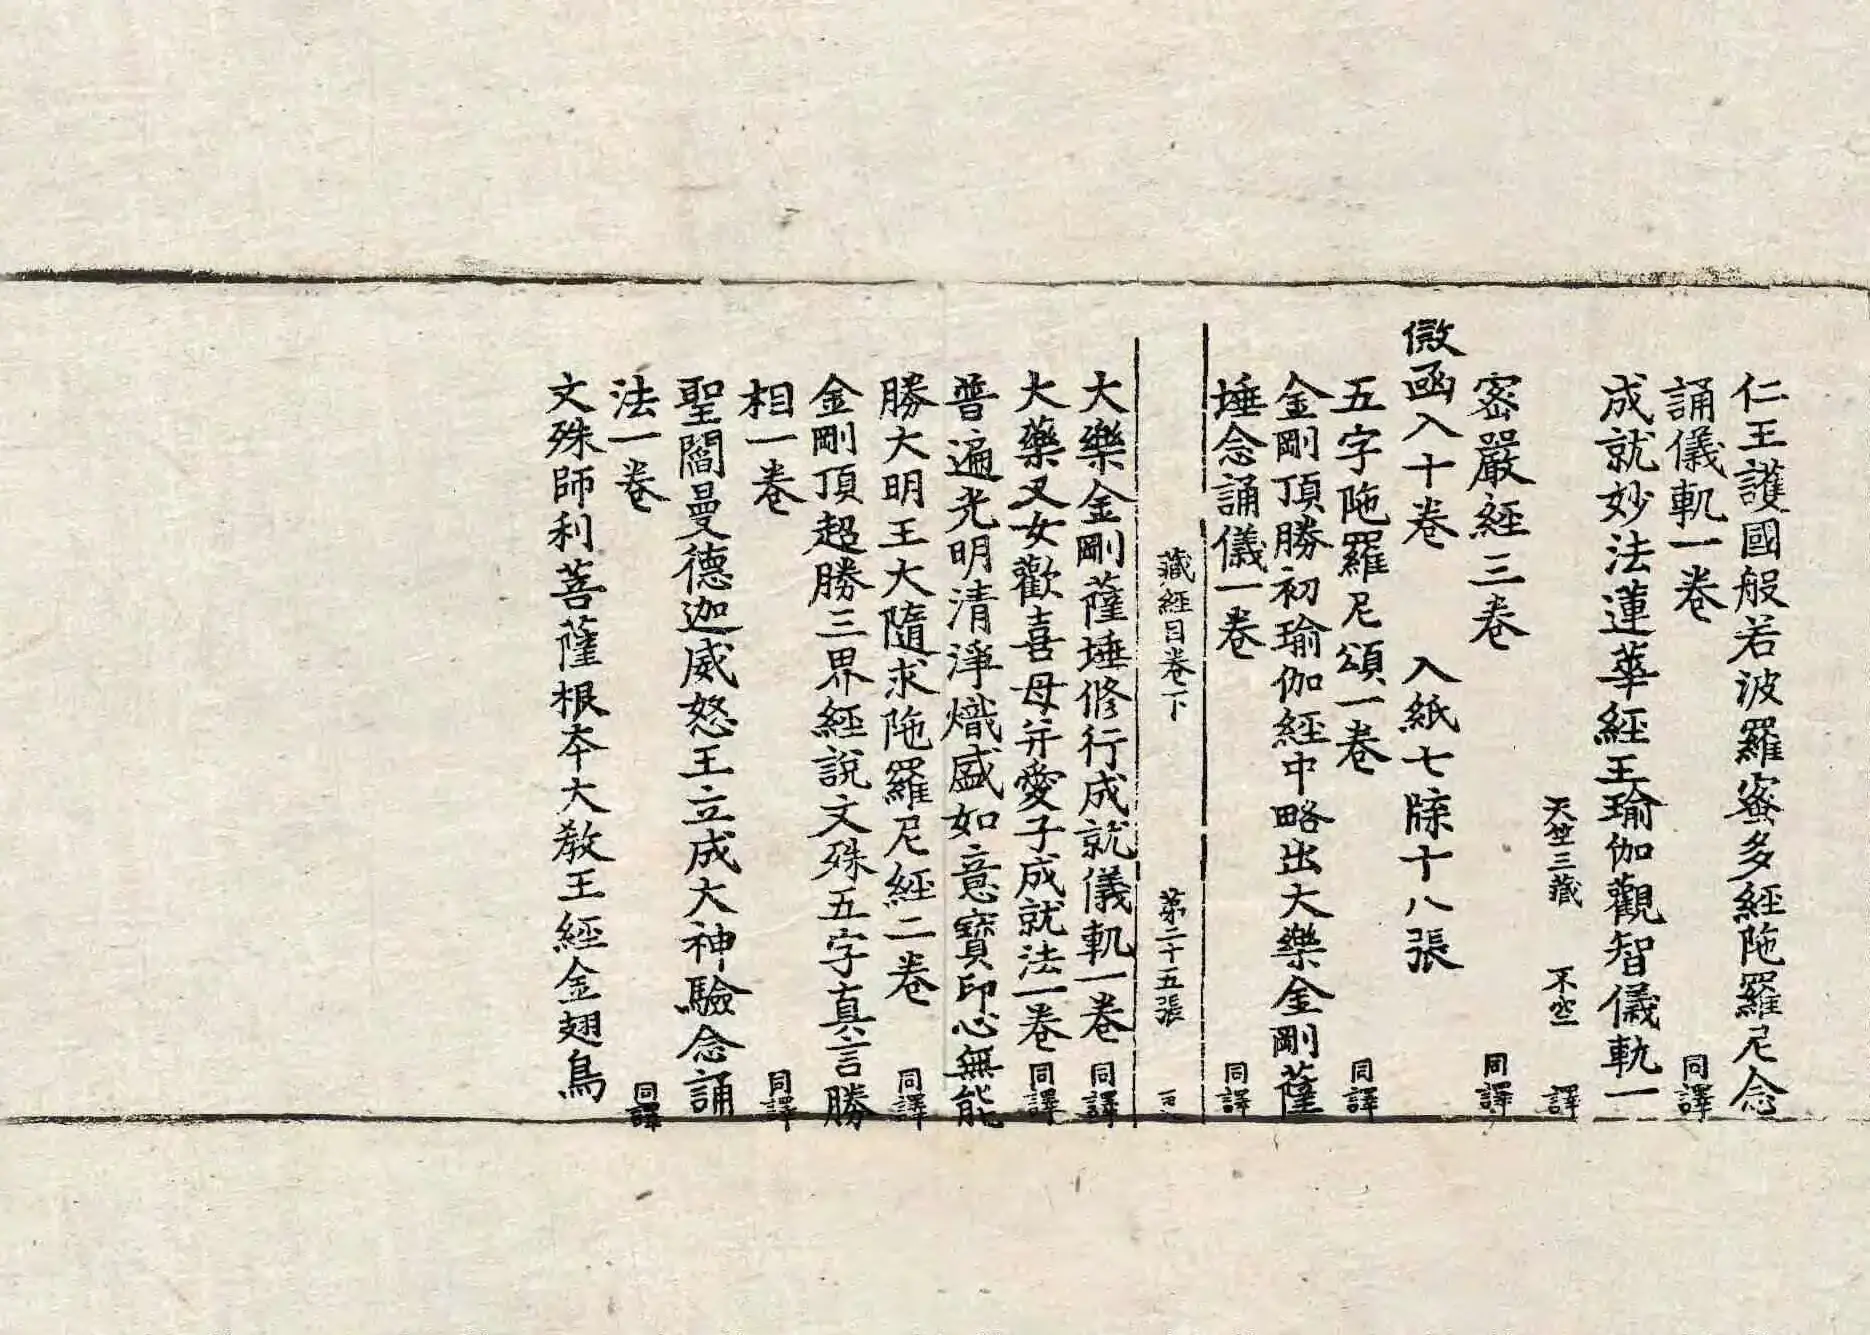 仁王護國般若波羅蜜多經陁羅尼念
誦儀軌一卷 同譯
成就妙法蓮華經王瑜伽觀智儀軌一
天竺三藏 不空 譯
密嚴經三卷 同譯
微函入十卷 入紙七牒十八張
五字陁羅尼頌一卷 同譯
金剛頂勝初瑜伽經中略出大樂金剛薩
埵念誦儀一卷 同譯
藏經目卷下 第二十五張
大樂金剛薩埵修行成就儀軌一卷 同譯
大藥叉女歡喜母并愛子成就法一卷 同譯
普遍光明清淨熾盛如意寶印心無能
勝大明王大隨求陁羅尼經二卷 同譯
金剛頂超勝三界經說文殊五字真言勝
相一卷 同譯
聖閻曼德迦威怒王立成大神驗念誦
法一卷 同譯
文殊師利菩薩根本大教王經金翅鳥